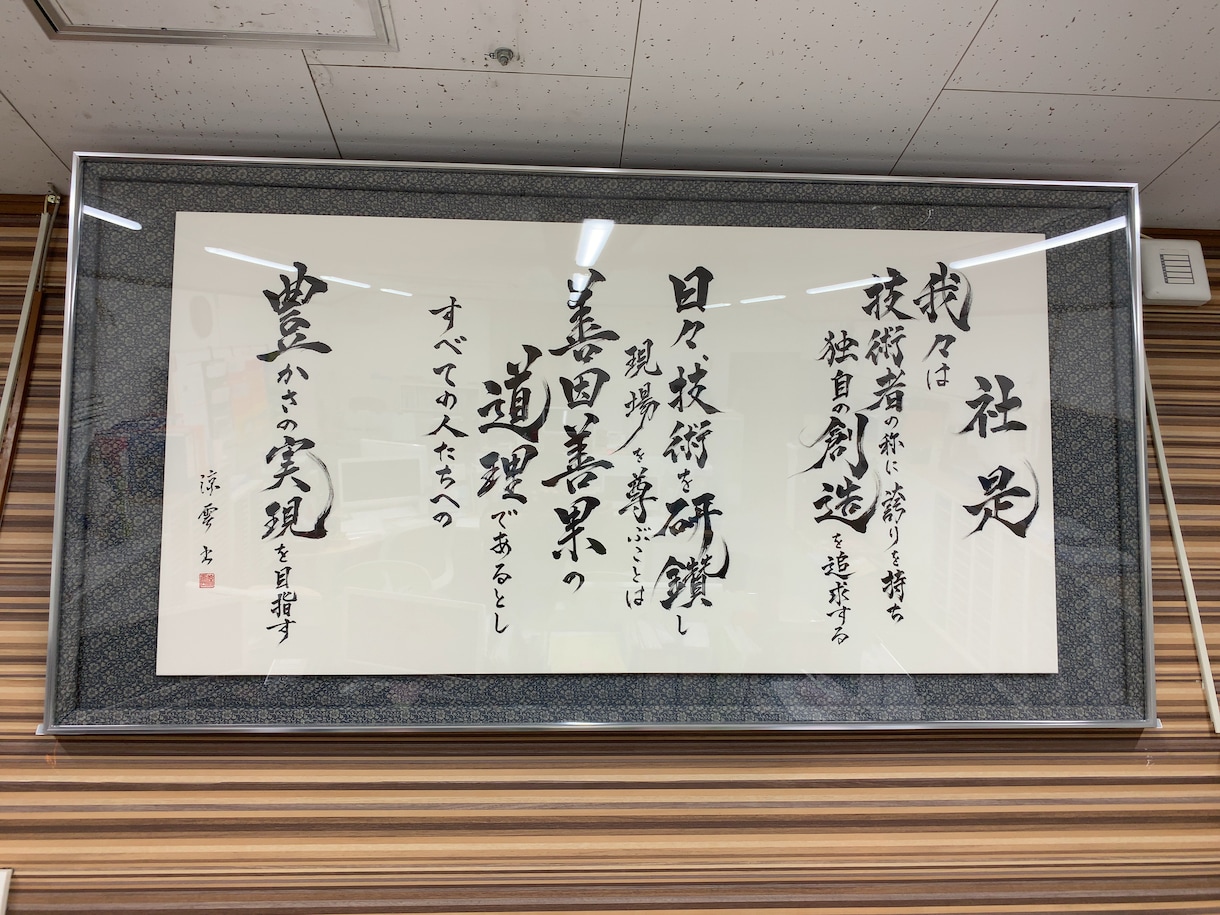 社是
我々は
技術者の称に誇りを持ち
独自の創造を追求する
日々、技術を研鑽し
現場を尊ぶことは
善因善果の
道理であるとし
すべての人たちへの
豊かさの実現を目指す
涼雲書